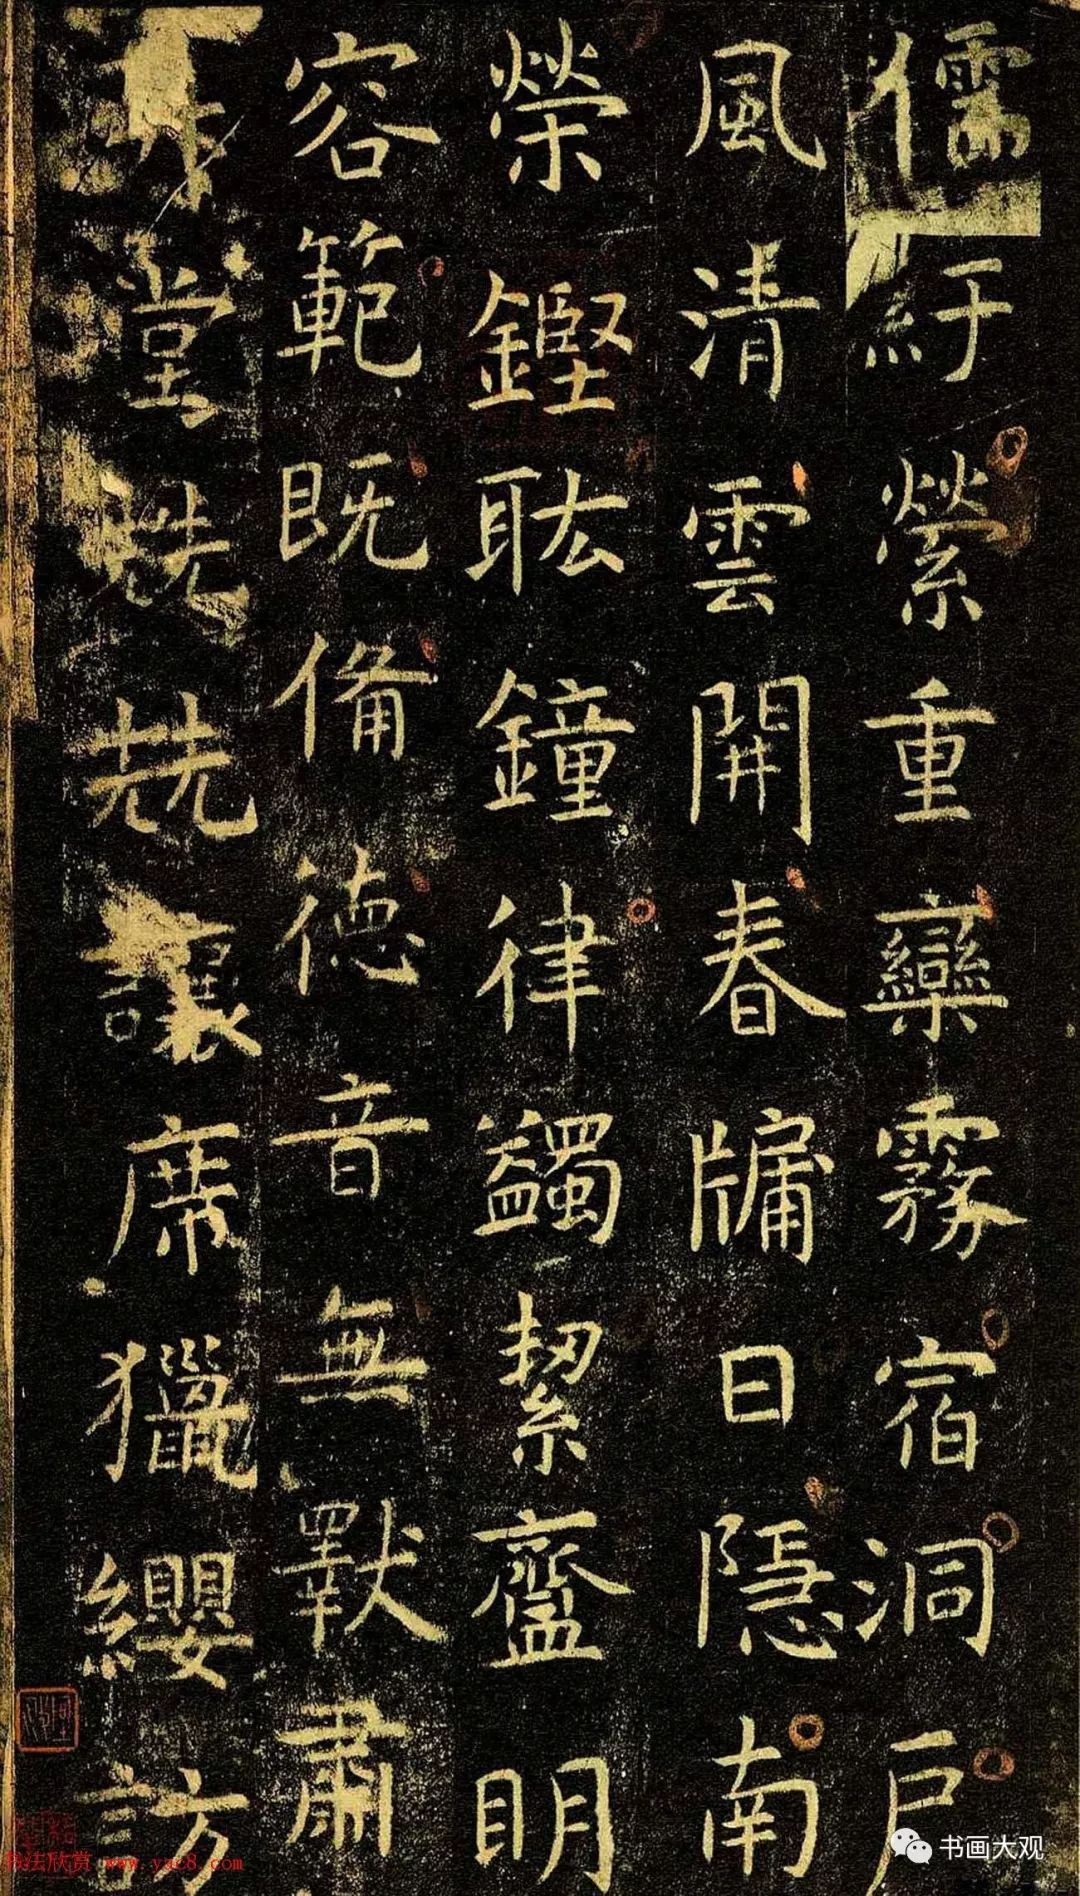 儒紆縈重欒霧宿洞戶
風清雲開春牖日隱南
榮鏗耾鐘律蠲絜齍明
容範既備德音無斁肅
堂兢兢讓席獵纓訪
书画大观
书法欣赏 www.yac8.com